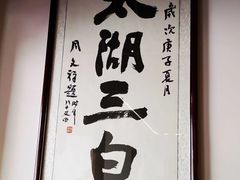 歲次庚子夏月
太湖三白
周文祥題